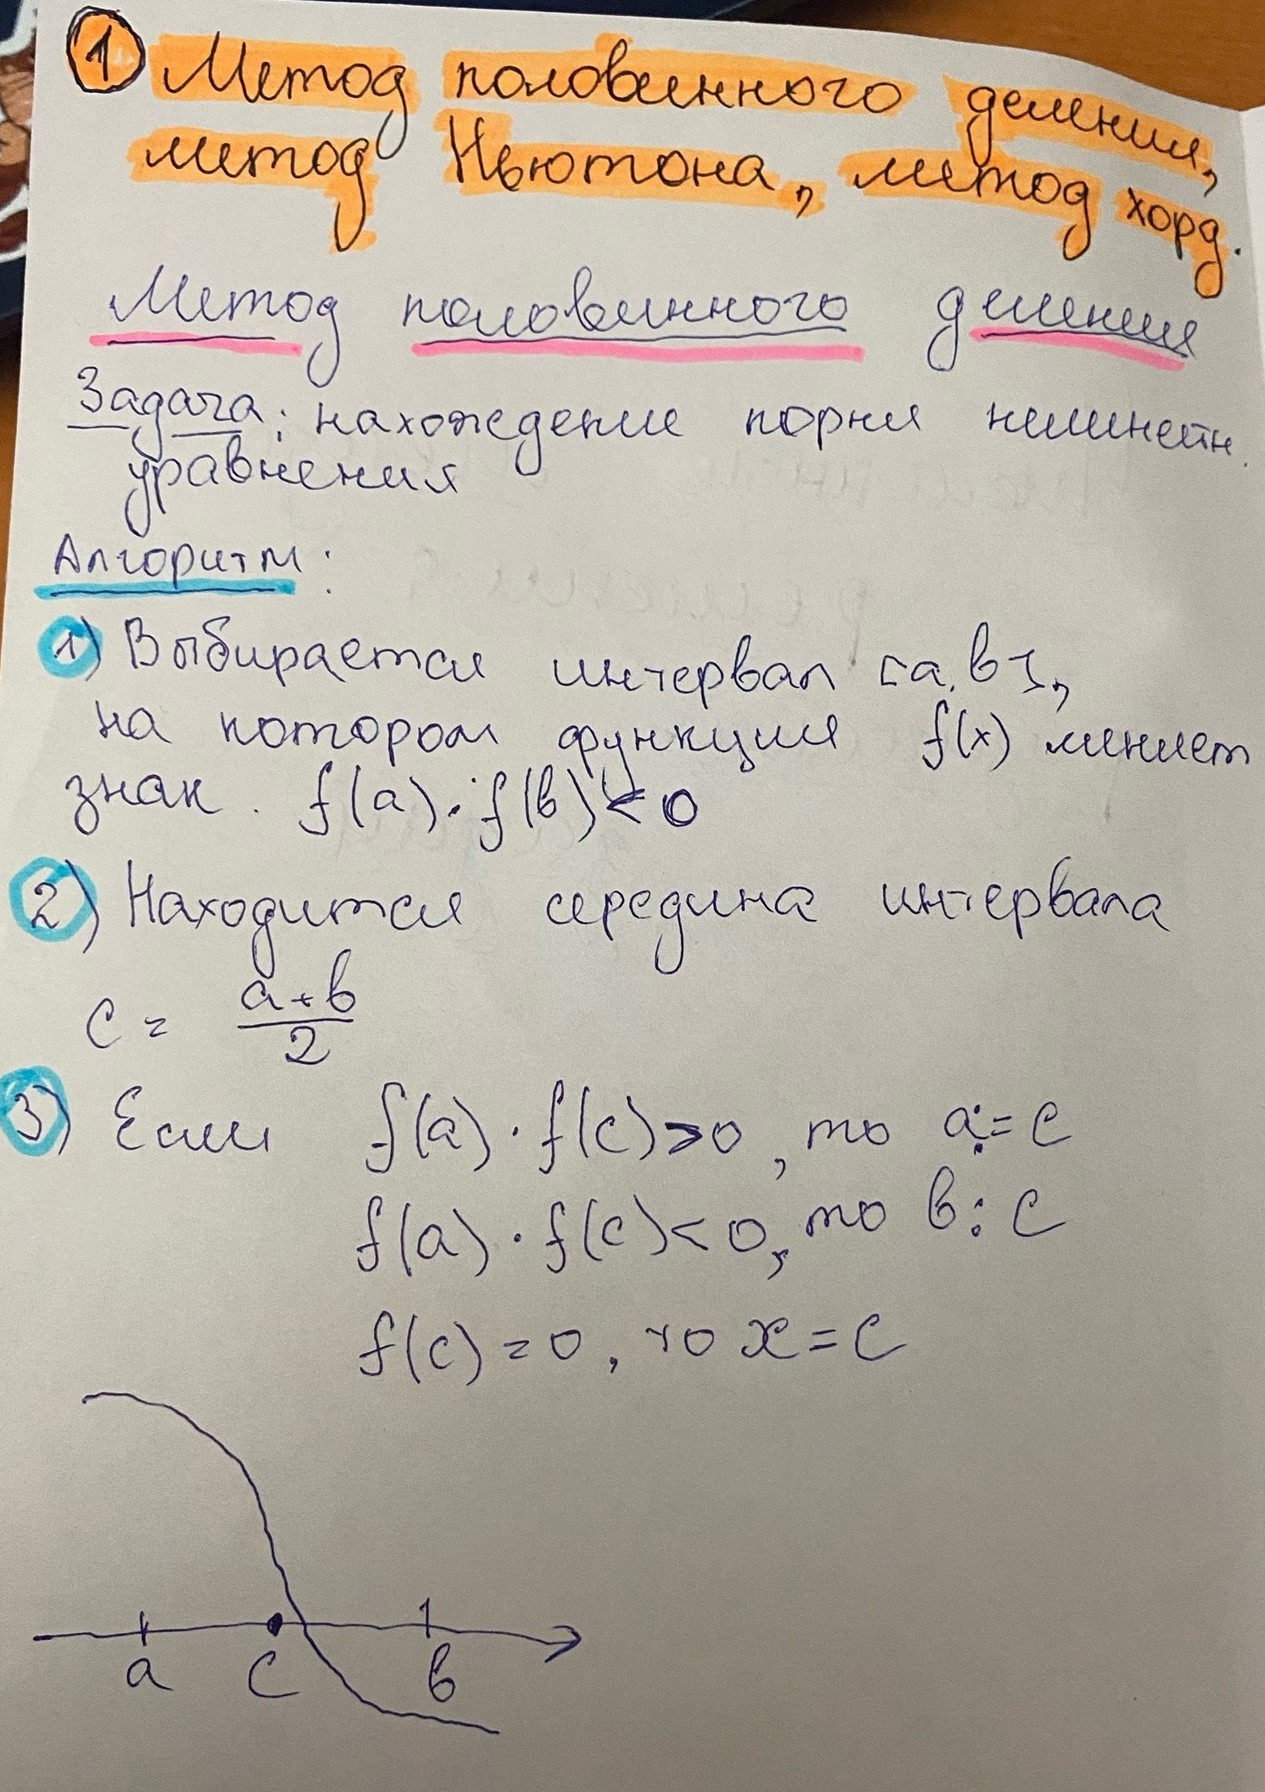 1 Метод половинного деления,
метод Ньютона, метод хорд.
Метод половинного деления
Задача: нахождение корня нелинейн.
уравнения
Алгоритм:
1) Выбирается интервал [a, b],
на котором функция f(x) меняет
знак. f(a)·f(b)<0
2) Находится середина интервала
c = (a+b)/2
3) Если f(a)·f(c)>0, то a:=c
f(a)·f(c)<0, то b:c
f(c)=0, то x=c
a c b